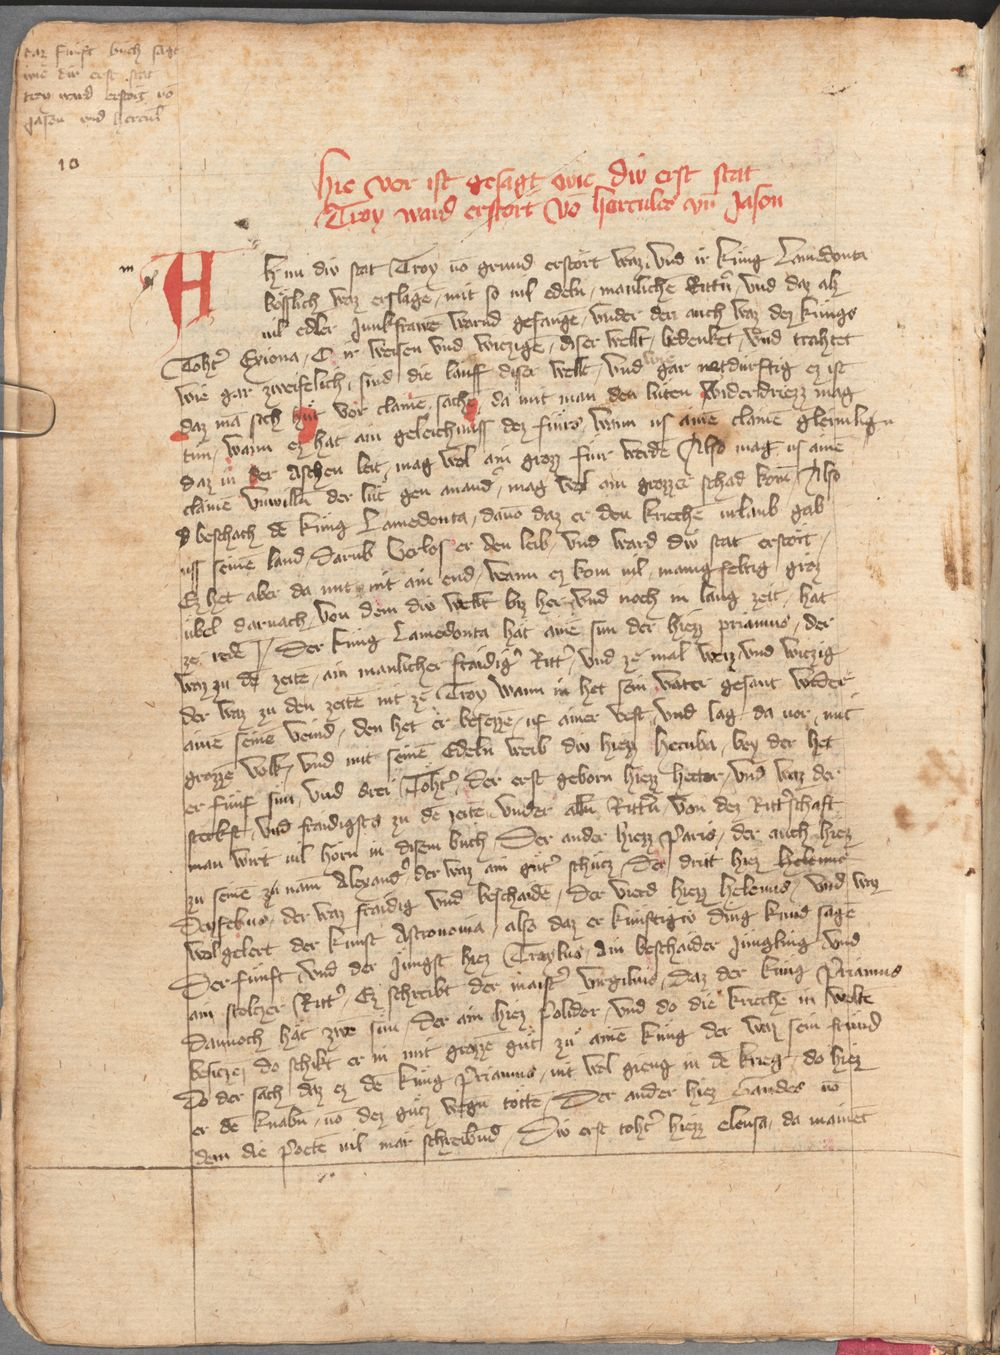 daz funft buch sagt
wie diw erst stat
troy ward erstört vō
Jason und hercul
10
Hie vor ist gesagt wie diw erst stat
Troy ward erstört vō hercules vn̄ Jason
nu diw stat Troy vō grund erstört waz, vnd ir küng Lamedonta
böslich waz erslagē, mit so vil edeln, manlichē Rittn̄, vnd daz als
vil edler Junkfrawē warnd gefangē, vnder den auch waz dez küngs
Toht Exiona, O ir weisen vnd wiczigē, diser welt, bedenket, vnd trahtet
wie gar zweifelich, sind die lauff diser welt, vnd wie gar notdürftig ez ist
daz mā sich hüt vor clainē, sachē, da mit man den lüten widerdriezz mag
tun, wann ez hat ain geleichnuss dez fürs, wann vs ainē clainē
daz in der Aschen leit, mag wol ain grozz für werdē Also mag vs ainē
clainē vnwilln̄ der lüt gen anand, mag wol ain grozzer schad kom̄, Also
beschach dē küng Lamedonta, dauō daz er den kriechē vrlaub gab
uss seinē land, Darūb verlos er den leib, vnd ward diw stat erstört,
Ez het aber da mit nit ain end, wann ez kom vil, manigfeltig groz
übel darnach, von dem diw welt biz her, vnd noch in lang zeit, hat
ze redē, Der küng Lamedonta hat ainē sun der hiezz priamus, der
waz zu dē zeitē, ain manlicher fraidig Ritt, vnd ze mal weiz, vnd wiczig
der waz zu den zeitē nit ze Troy wann in het sein vater gesant wider
ainē seinē veind, den het er besezzē, vf ainer vest, vnd lag da vor, mit
grozzē volk, vnd mit seinē Edeln weib diw hiezz hecuba, bey der het
er fünf sun, vnd drei Töht, der erst geborn hiezz hector, vnd waz der
sterkst, vnd fraidigst zu dē zeitē vnder alln̄ Rittn̄, von dez Rittschaft
man wirt vil hörn in disem buch, Der ander hiezz Paris, der auch hiez
zu seinē zu nam Alexand, der waz ain gut schütz, Der dritt hiez helenus
Deyfebus, der waz fraidig vnd beschaidē, Der vierd hiezz helenus, vnd waz
wol gelert der kunst Astronomia, also daz er künftigiw ding kund sagē
Der fünft vnd der Jungst hiez Troylus, Ain beschaider Jüngling vnd
ain stolczer Ritt, Ez schreibt der maist virgilius, Daz der küng Priamus
dannoch hat zwē sun, Der ain hiez Polidor, vnd do die kriechē in woltē
besiczē, do schikt er in mit grozzē gut zu ainē küng der waz sein fründ
Do der sach daz ez dē küng Priamus, nit wol gieng in dē krieg, do hiez
er dē knabn̄, vō dez gutz wegn̄ tötte, Der ander hiez Ganides vō
dem die Poetē vil mär schreibnd, Diw erst toht hiezz elensa, da mainēt